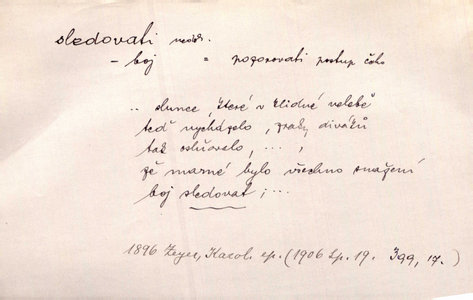 sledovati nedok.
– boj = pozorovati postup čeho
.. slunce, které v klidné velebě
teď vycházelo, zraky diváků
tak oslňovalo, ..,
že marné bylo všechno snažení
boj sledovat; ...
1896 Zeyer, Karol. ep. (1906 Sp. 19. 399, 17.)